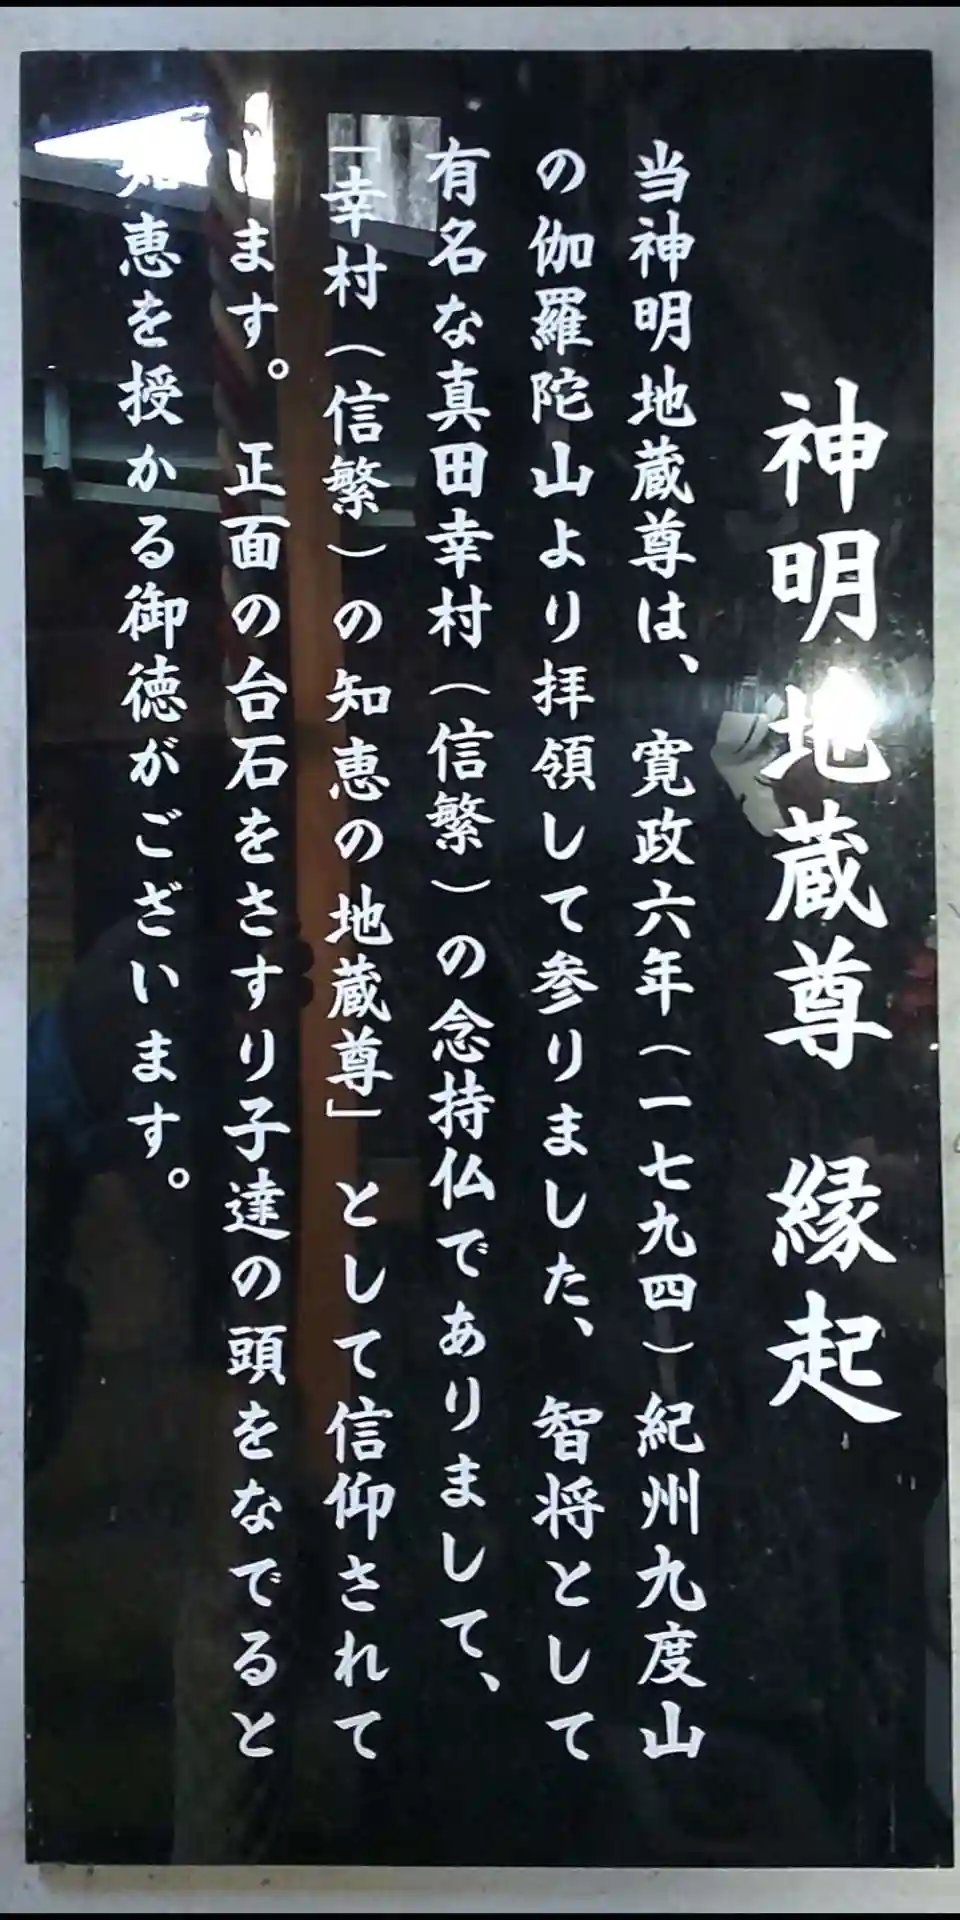 神明地蔵尊　縁起
当神明地蔵尊は、寛政六年(一七九四)紀州九度山
の伽羅陀山より拝領して参りました、智将として
有名な真田幸村(信繁)の念持仏でありまして、
「幸村(信繁)の知恵の地蔵尊」として信仰されて
います。正面の台石をさすり子達の頭をなでると
知恵を授かる御徳がございます。